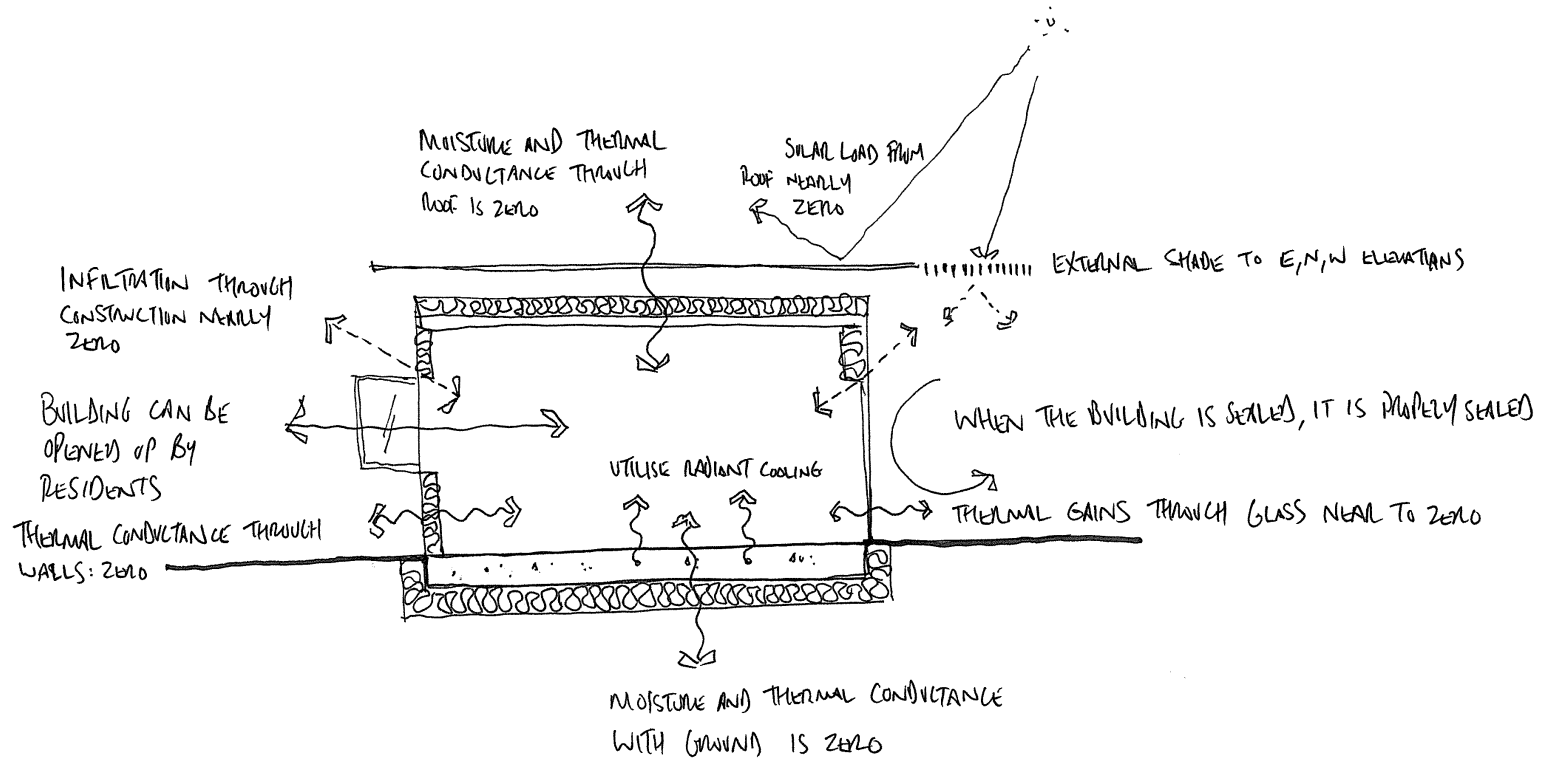 MOISTURE AND THERMAL
CONDUCTANCE THROUGH
ROOF IS ZERO
SOLAR LOAD FROM
ROOF NEARLY
ZERO
EXTERNAL SHADE TO E,N,W ELEVATIONS
INFILTRATION THROUGH
CONSTRUCTION NEARLY
ZERO
BUILDING CAN BE
OPENED UP BY
RESIDENTS
WHEN THE BUILDING IS SEALED, IT IS PROPERLY SEALED
UTILISE RADIANT COOLING
THERMAL GAINS THROUGH GLASS NEAR TO ZERO
THERMAL CONDUCTANCE THROUGH
WALLS: ZERO
MOISTURE AND THERMAL CONDUCTANCE
WITH GROUND IS ZERO